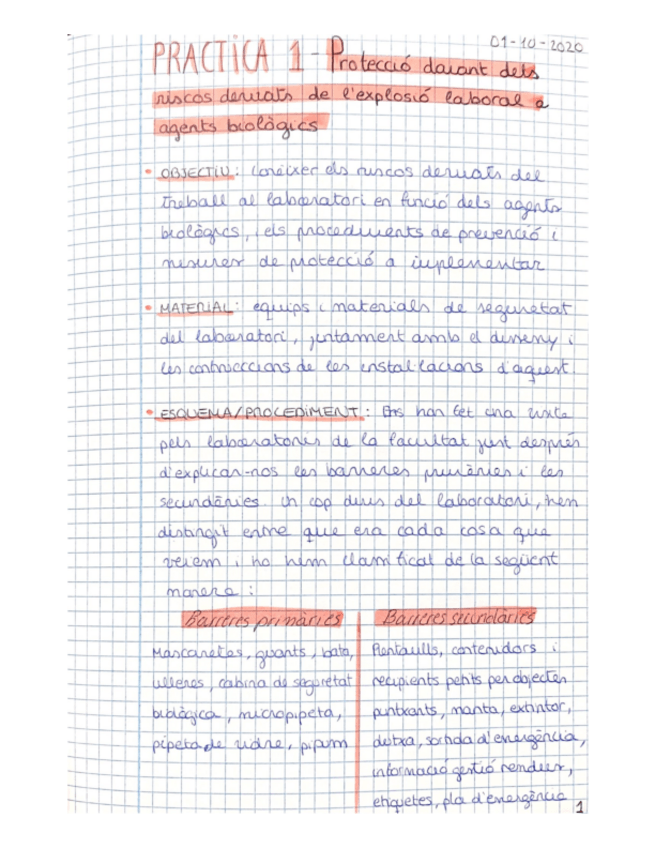 01-10-2020
PRACTICA 1 - Protecció davant dels
riscos derivats de l'explosió laboral a
agents biològics
• OBJECTIU: Conèixer els riscos derivats del
treball al laboratori en funció dels agents
biològics, i els procediments de prevenció i
mesures de protecció a implementar
• MATERIAL: equips i materials de seguretat
del laboratori, juntament amb el disseny i
les construccions de les instal·lacions d'aquest.
• ESQUEMA/PROCEDIMENT: Ens han fet una visita
pels laboratoris de la facultat just després
d'explicar-nos les barreres primàries i les
secundàries. Un cop dins del laboratori, hem
distingit entre que era cada cosa que
veiem i ho hem classificat de la següent
manera:
Barreres primàries
Mascaretes, guants, bata,
ulleres, cabina de seguretat
biològica, micropipeta,
pipeta de vidre, pipum
Barreres secundàries
Rentaulls, contenidors i
recipients petits per objectes
puntxants, manta, extintor,
dutxa, sortida d'emergència,
informació gestió residus,
etiquetes, pla d'emergència
1